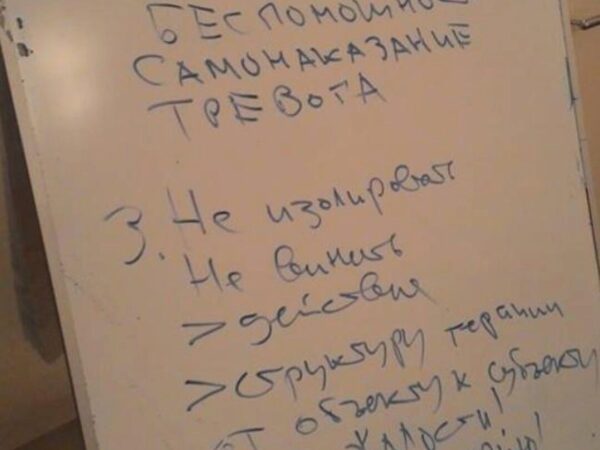 БЕСПОМОЩНОС
САМОНАКАЗАНИЕ
ТРЕВОГА
3. Не изолировать
Не винить
> действия
> структуру терапии
от объекту к субъекту
жалости!